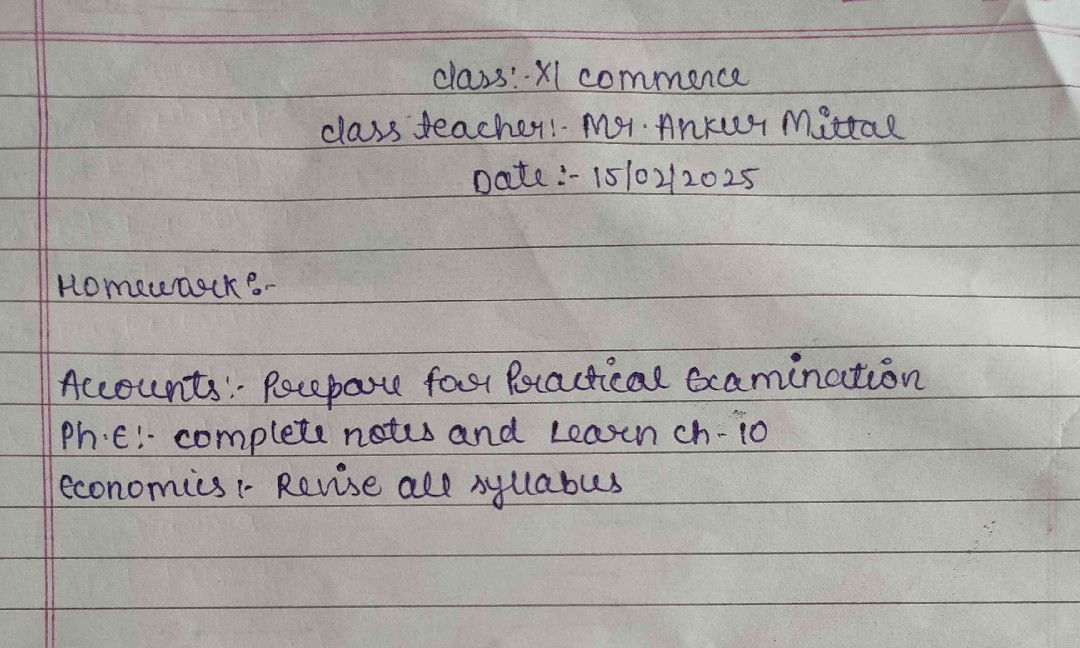 Class:- XI Commerce
Class teacher:- Mr. Ankur Mittal
Date:- 15/02/2025
Homework:-
Accounts:- Prepare for Practical Examination
Ph.E:- complete notes and Learn ch-10
Economics:- Revise all syllabus